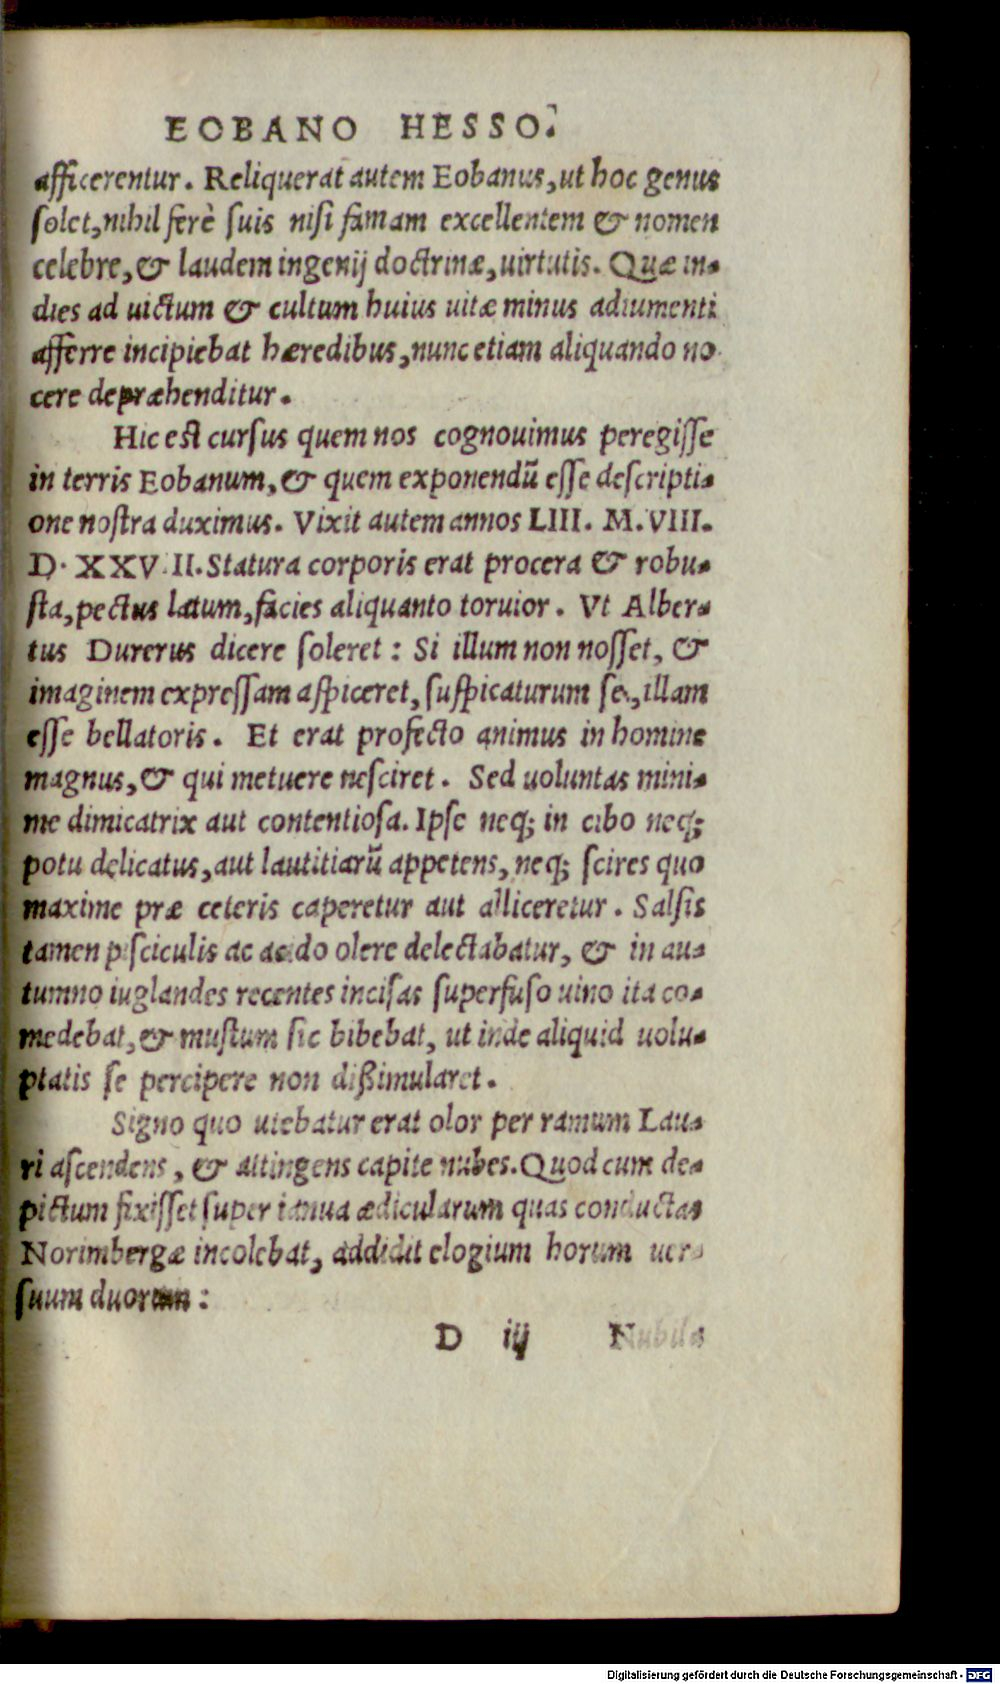 EOBANO HESSO.
afficerentur. Reliquerat autem Eobanus, ut hoc genus
solet, nihil ferè suis nisi famam excellentem & nomen
celebre, & laudem ingenij doctrinæ, uirtutis. Quæ in-
dies ad uictum & cultum huius uitæ minus adiumenti
afferre incipiebat hæredibus, nunc etiam aliquando no
cere depræhenditur.
Hic est cursus quem nos cognouimus peregisse
in terris Eobanum, & quem exponendũ esse descripti-
one nostra duximus. Vixit autem annos LIII. M. VIII.
D. XXVII. Statura corporis erat procera & robu-
sta, pectus latum, facies aliquanto toruior. Vt Alber-
tus Durerus dicere soleret: Si illum non nosset, &
imaginem expressam aspiceret, suspicaturum se, illam
esse bellatoris. Et erat profecto animus in homine
magnus, & qui metuere nesciret. Sed uoluntas mini-
me dimicatrix aut contentiosa. Ipse neq; in cibo neq;
potu delicatus, aut lautitiarũ appetens, neq; scires quo
maxime præ ceteris caperetur aut alliceretur. Salsis
tamen pisciculis ac acido olere delectabatur, & in au-
tumno iuglandes recentes incisas superfuso uino ita co-
medebat, & mustum sic bibebat, ut inde aliquid uolu-
ptatis se percipere non dißimularet.
Signo quo utebatur erat olor per ramum Lau-
ri ascendens, & attingens capite nubes. Quod cum de-
pictum fixisset super ianua ædicularum quas conductas
Norimbergæ incolebat, addidit elogium horum uer-
suum duorum:
D iij Nubila
Digitalisierung gefördert durch die Deutsche Forschungsgemeinschaft - DFG